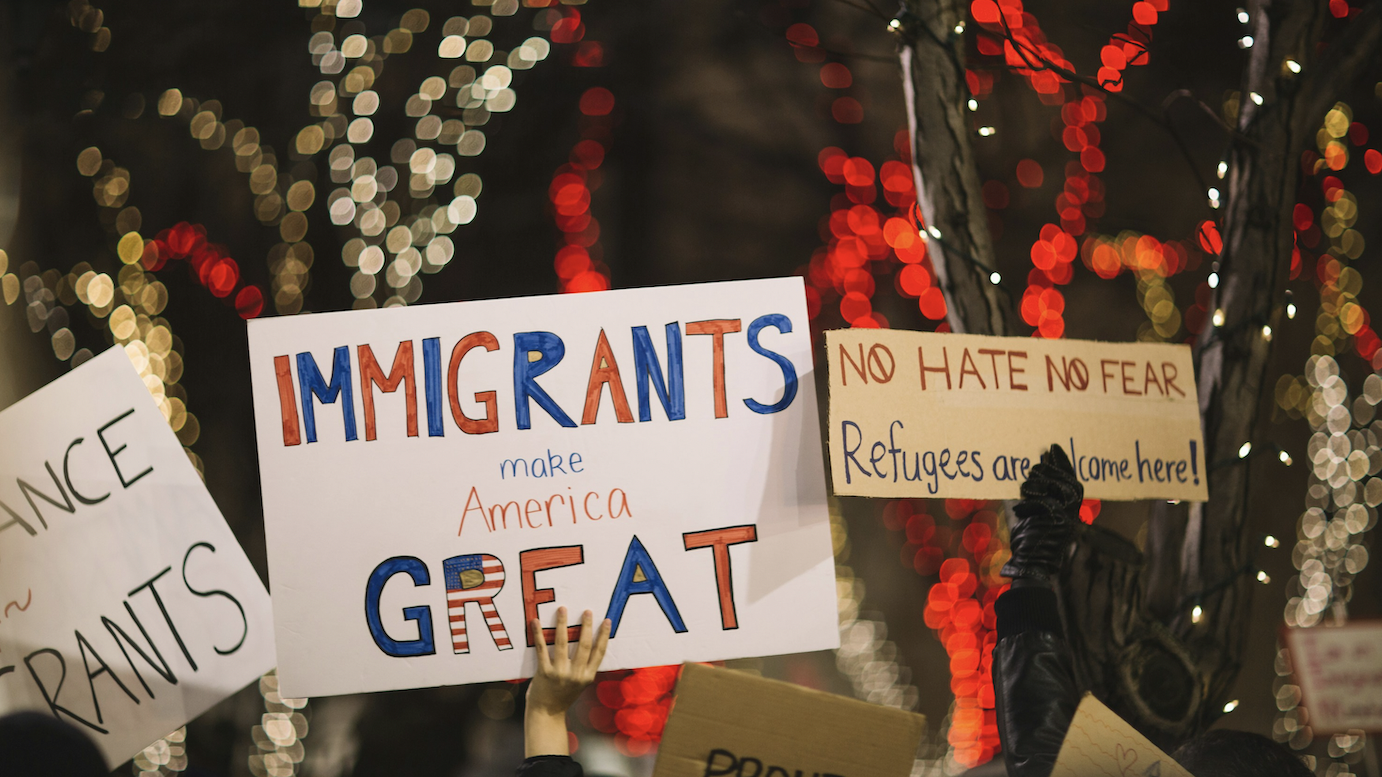 ANCE
RANTS
IMMIGRANTS
make
America
GREAT
NO HATE NO FEAR
Refugees are welcome here!